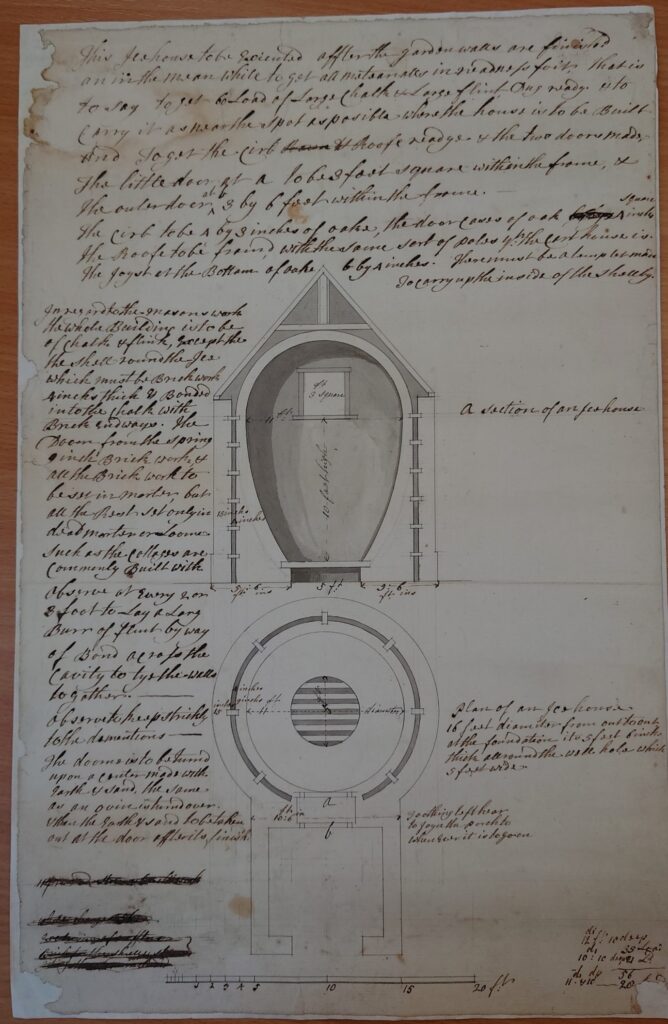 This Icehouse to be Executed affter the garden walls are finished
an in the mean while to get all matearials in readness for it, that is
to say to get 60 Load of Large Chalk & Large flint Dug ready is to
Carry it as near the spot as posible where the house is to be Built
And To get the Cirb & Roofe readye & the two doors made,
The little door at a to be 3 feet square within the frame, &
the outer door at b 3 by 6 feet within the frame.
The Cirb to be 4 by 3 inches of oake, the door cases of oak, 4 inchs square
The Roofe to be fraim'd with the same sort of Poles yt. the Cart house is.
The Joyst at the Bottom of oake 6 by 4 inches. There must be a templet made
To carry up the inside of the shell by.
In regard to the masons work
the whole Building is to be
of chalk & flint, Except the
the shell round the Ice
which must be Brick work
4 inchs thick & Bonded
into the chalk with
Brick Endways. The
Doom from the spring
9 inch Brick work, &
all the Brick work to
be set in morter, but
all the Rest set only in
dead morter or Loome
such as the Cotteges are
Commonly Built with
observe at Every 2 or
3 foot to Lay a Long
Burr of flint by way
of Bond across the
Cavity to tye the walls
to gather.
observe to keep strickly
to the demontions
The doome is to be turnd
upon a center made with
Earth & sand, the same
as an oven is turnd over.
then the Earth & sand to be taken
out at the door affter it is finish
ft.
3 square
11 ft.
10 feet high
18 inchs
9 inches
3 : 6
ft: ins
5 ft.
3 : 6
ft: ins
A section of an Icehouse
11 ft.
diameter
5 ft
Plan of an Icehouse
16 feet diameter from out to out
at the foundation its 5 feet 6 inchs
thick all round the well hole which
5 feet wide.
a
ft: in
10 : 6
b
Toothing left hear
to joyn the porch to
when ever it is to goe on
1 2 3 4 5 10 15 20 ft.